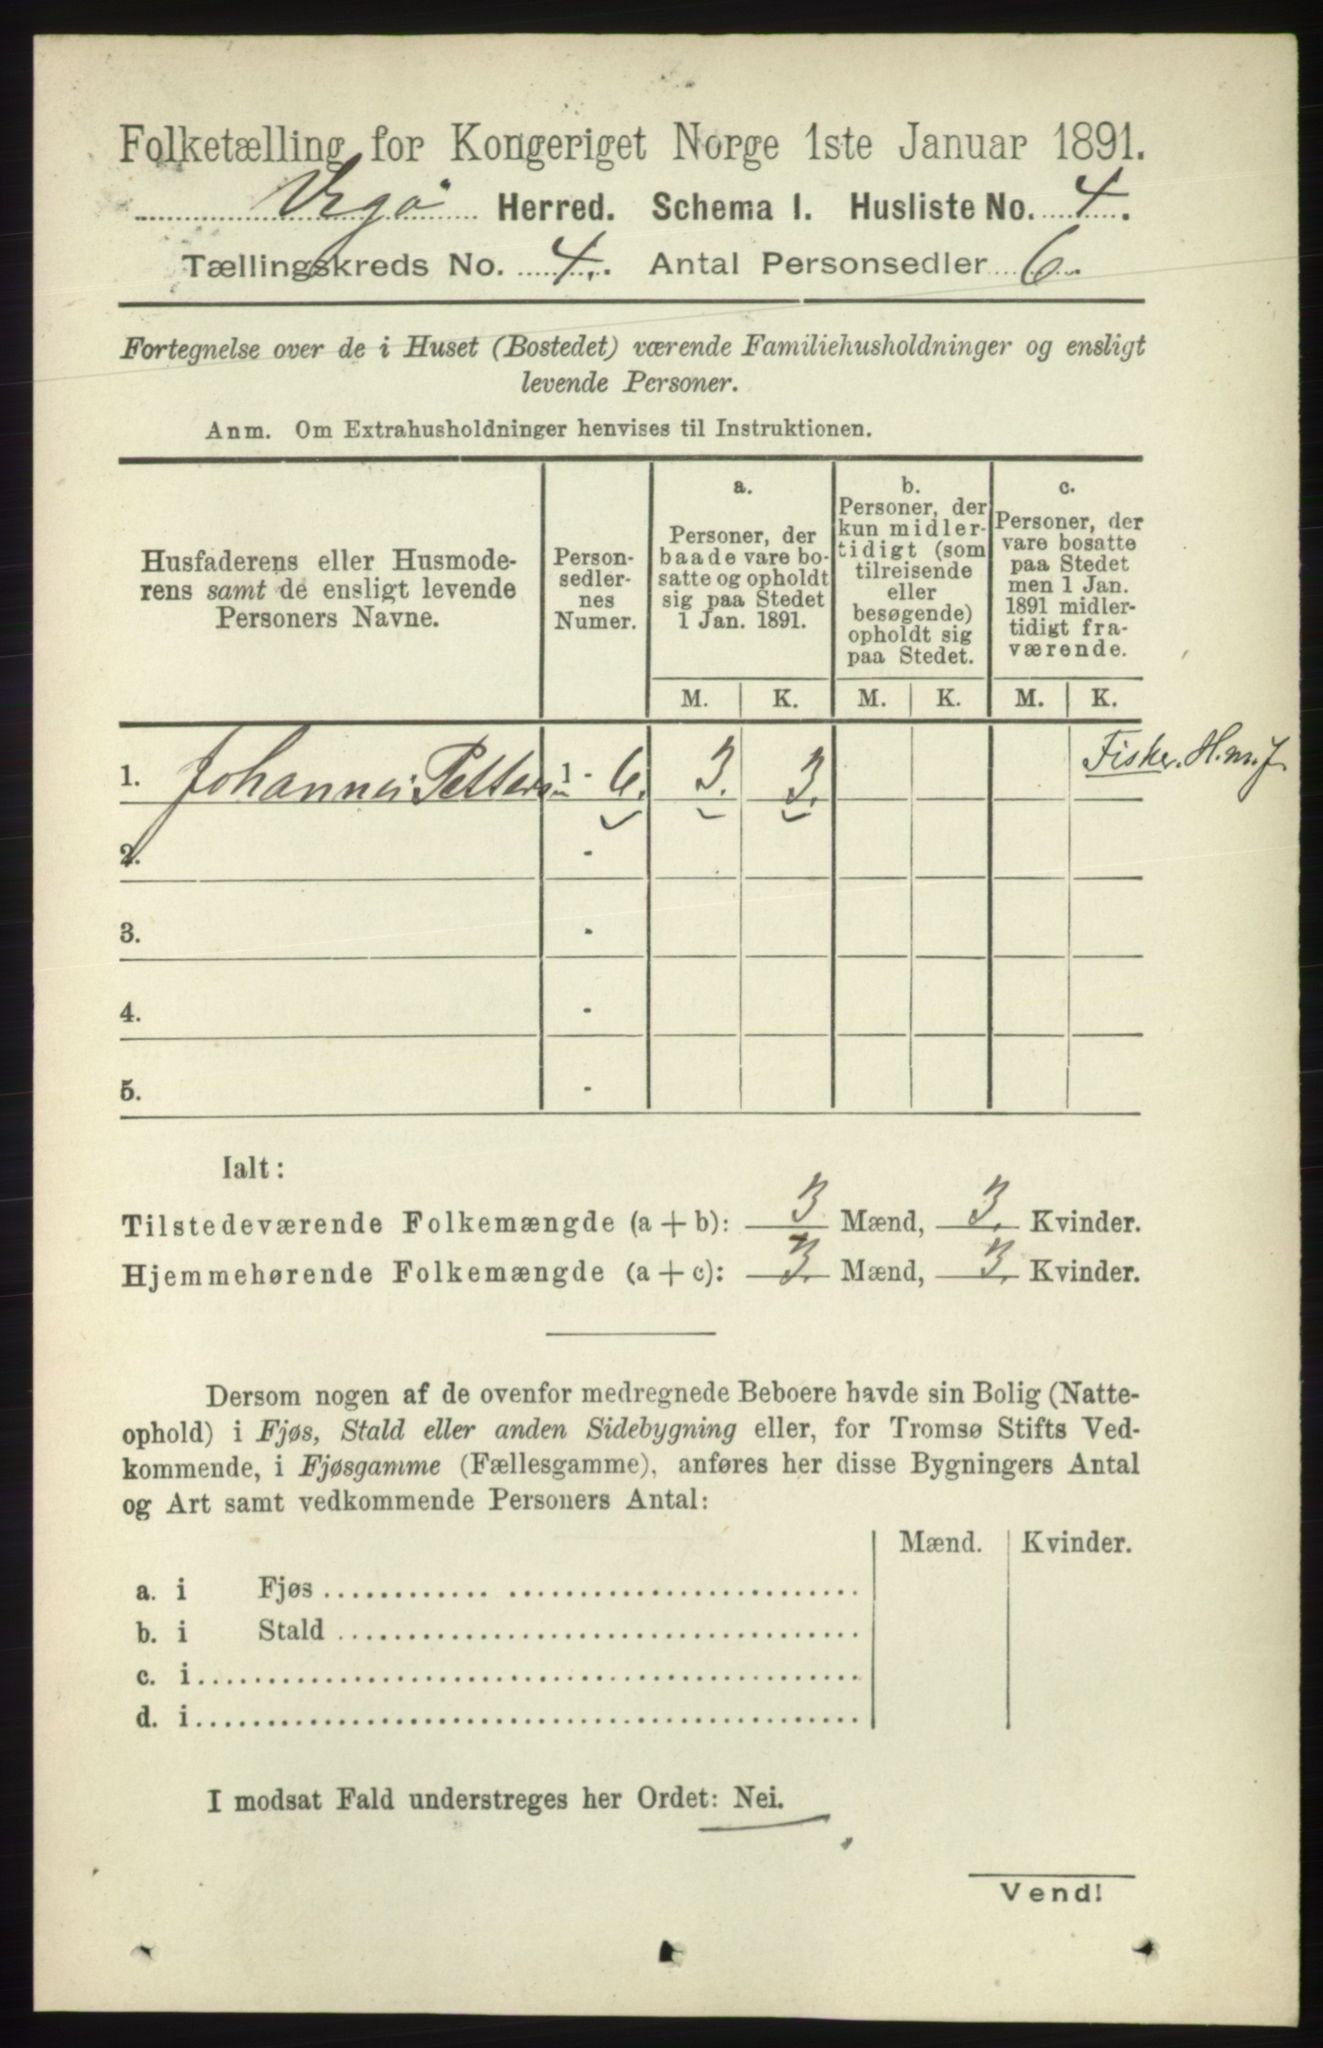 Folketælling for Kongeriget Norge 1ste Januar 1891.
Vegø Herred. Schema 1. Husliste No. 4.
Tællingskreds No. 4. Antal Personsedler 6.
Fortegnelse over de i Huset (Bostedet) værende Familiehusholdninger og ensligt
levende Personer.
Anm. Om Extrahusholdninger henvises til Instruktionen.
Husfaderens eller Husmode-
rens samt de ensligt levende
Personers Navne.
Person-
sedler-
nes
Numer.
a.
Personer, der
baade vare bo-
satte og opholdt
sig paa Stedet
1 Jan. 1891.
b.
Personer, der
kun midler-
tidigt (som
tilreisende
eller
besøgende)
opholdt sig
paa Stedet.
c.
Personer, der
vare bosatte
paa Stedet
men 1 Jan.
1891 midler-
tidigt fra-
værende.
M. K. M. K. M. K.
1. 1 - 6. 3. 3. Fisker. H.m.J.
2. -
3. -
4. -
5. -
Ialt:
Tilstedeværende Folkemængde (a + b): 3 Mænd, 3. Kvinder.
Hjemmehørende Folkemængde (a + c): 3. Mænd, 3. Kvinder.
Dersom nogen af de ovenfor medregnede Beboere havde sin Bolig (Natte-
ophold) i Fjøs, Stald eller anden Sidebygning eller, for Tromsø Stifts Ved-
kommende, i Fjøsgamme (Fællesgamme), anføres her disse Bygningers Antal
og Art samt vedkommende Personers Antal:
Mænd. Kvinder.
a. i Fjøs
b. i Stald
c. i
d. i
I modsat Fald understreges her Ordet: Nei.
Vend!